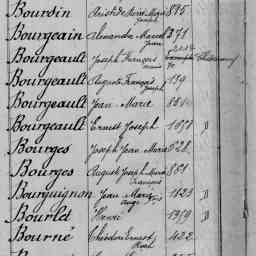 Bourdin Aristide Marie Joseph 895
Bourgeain Alexandre Marcel Jean 371
Bourgeault Joseph François
Bourgeault Auguste François Joseph 139
Bourgeault Jean Marie 851
Bourgeault Ernest Joseph 1051 D
Bourges Joseph Jean Marie 528
Bourges August Joseph Marie François 851
Bourguignon Jean Marie Ange 1223 D
Bourlet Henri 1319 D
Bourné Théodore Ernest René 422